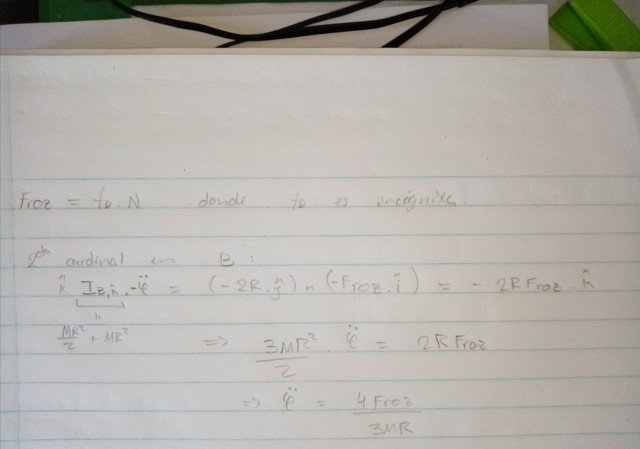 Froz = fD . N donde fD es incógnita
2da cardinal en B :
k̂ . I_B,k̂ . -φ̈ = (-2R.ĵ) ∧ (-Froz.î) = - 2R Froz . k̂
MR²/2 + MR² => 3MR²/2 . φ̈ = 2R Froz
=> φ̈ = 4 Froz/3MR